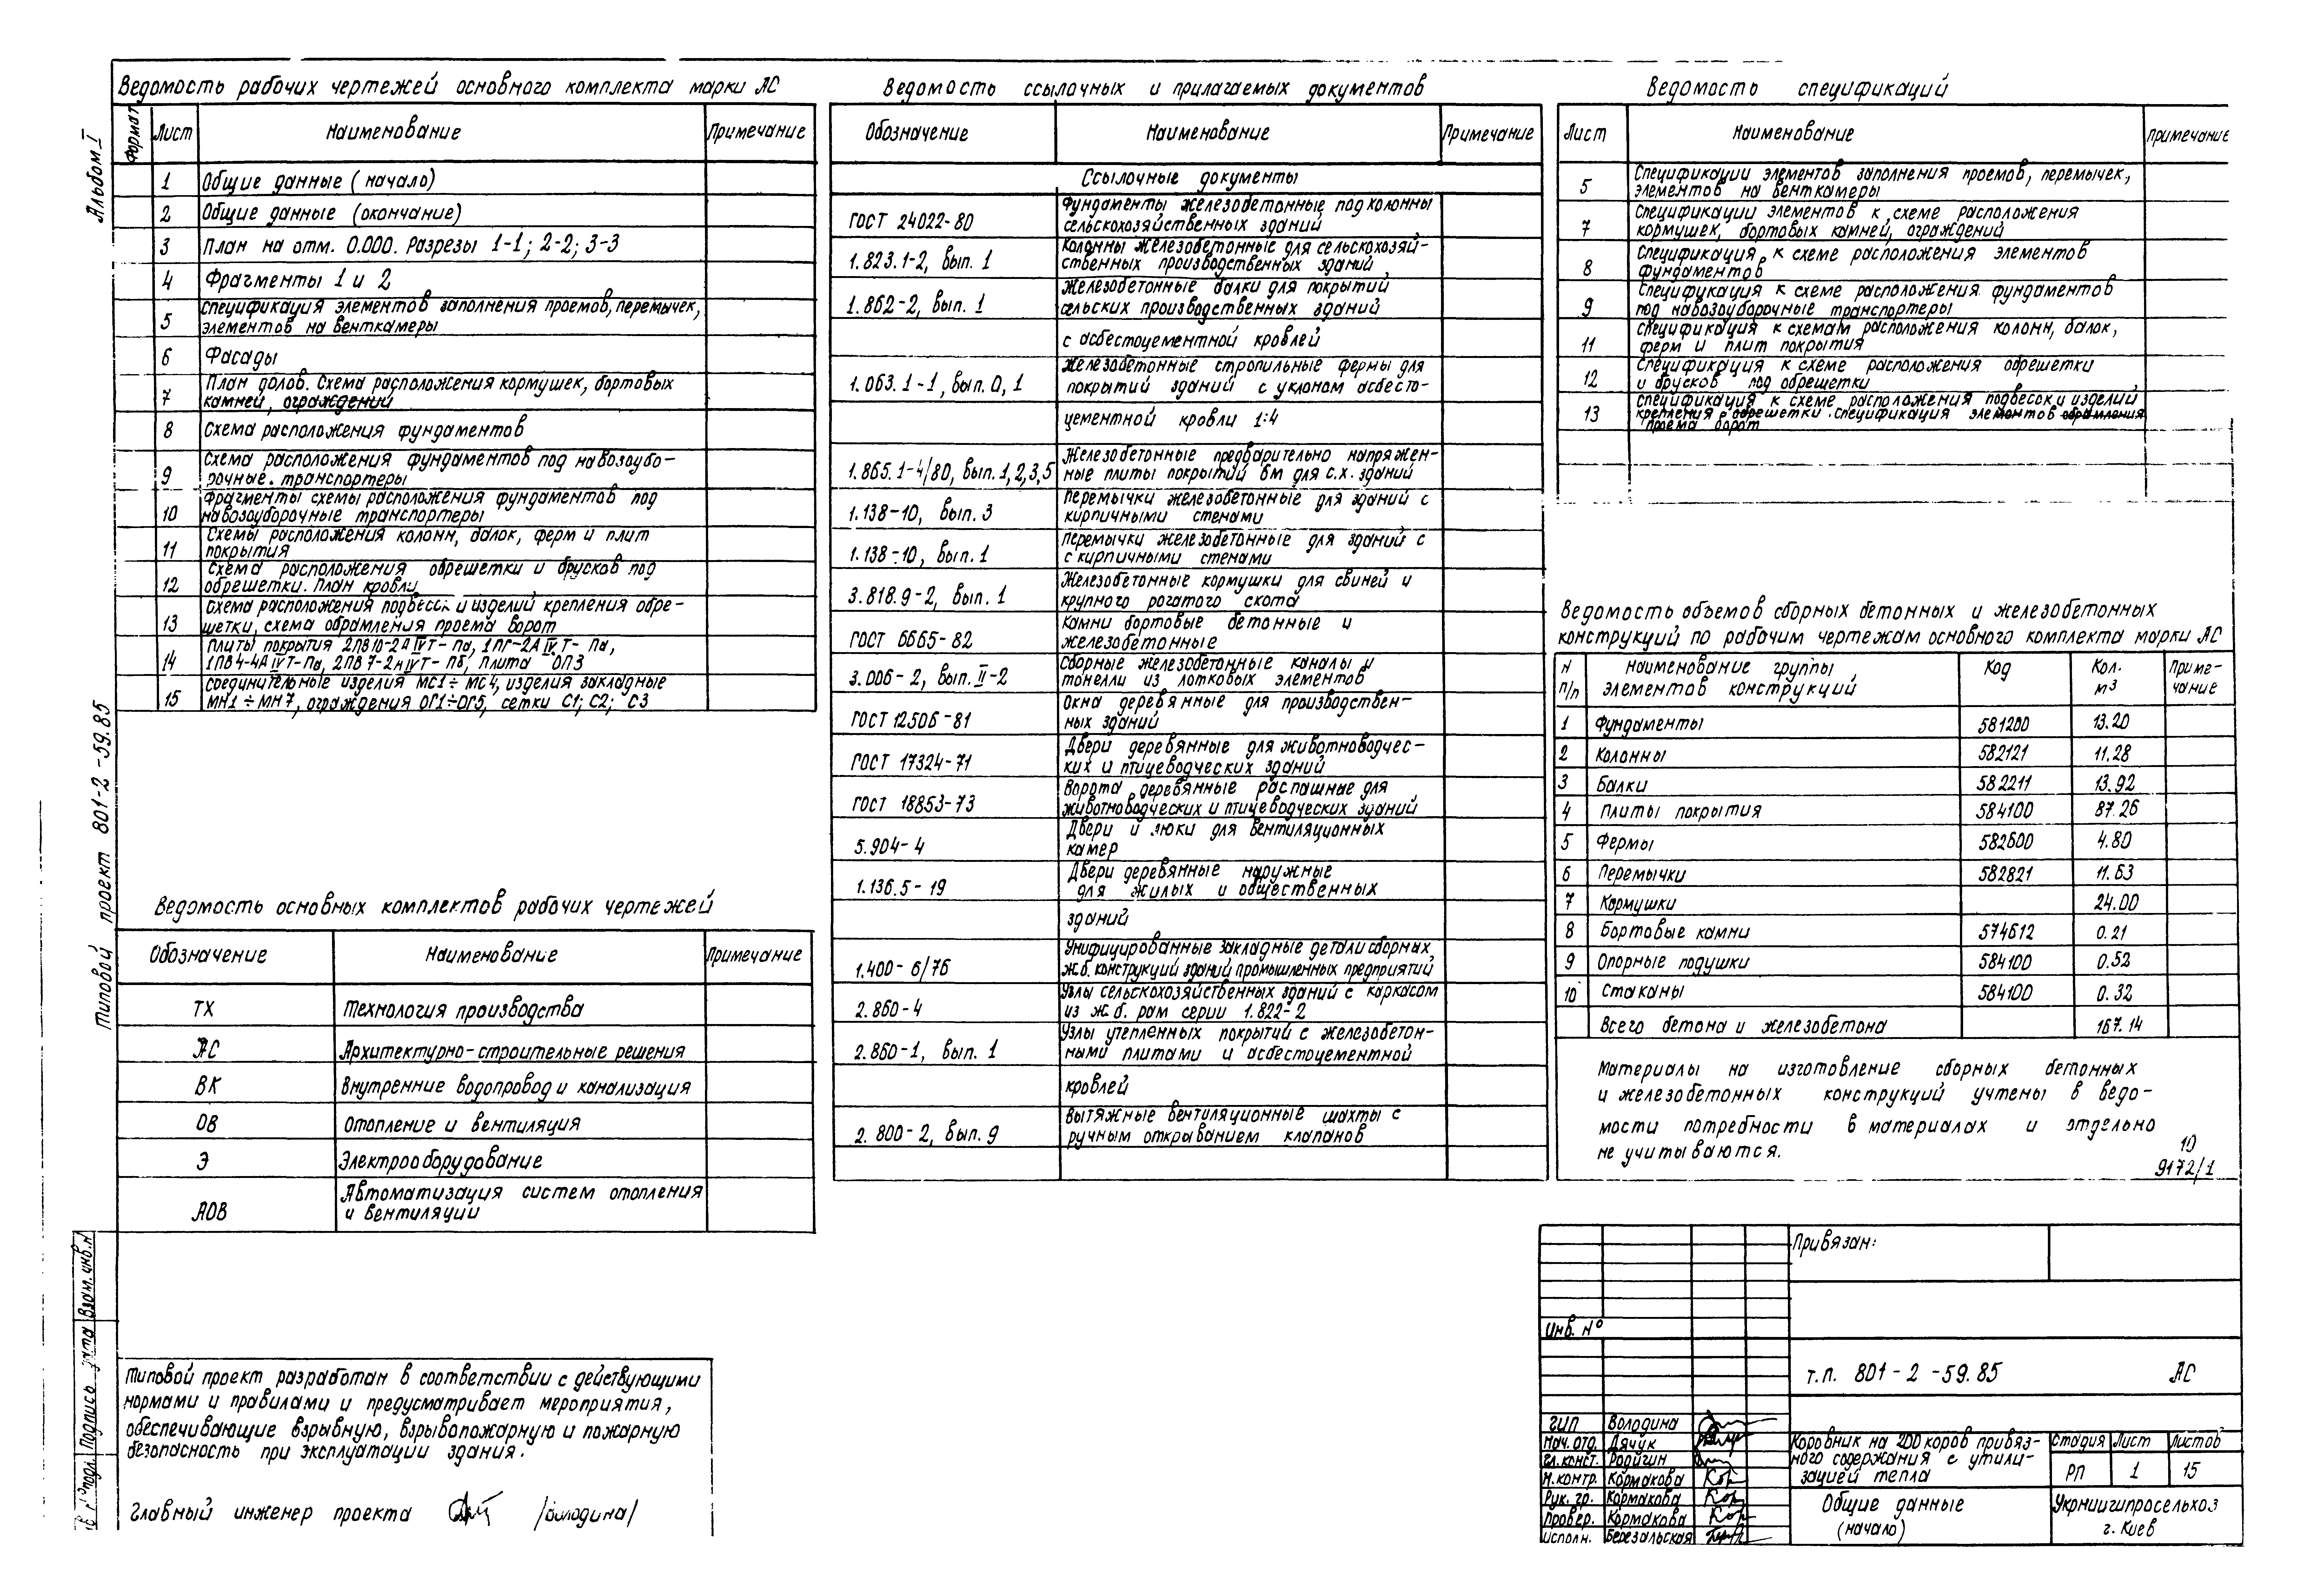 Альбом I
Типовой проект 801-2-59.85
Ведомость рабочих чертежей основного комплекта марки АС
Формат Лист Наименование Примечание
1 Общие данные (начало)
2 Общие данные (окончание)
3 План на отм. 0.000. Разрезы 1-1; 2-2; 3-3
4 Фрагменты 1 и 2
5 Спецификация элементов заполнения проемов, перемычек,
элементов на венткамеры
6 Фасады
7 План полов. Схема расположения кормушек, бортовых
камней, ограждений
8 Схема расположения фундаментов
9 Схема расположения фундаментов под навозоубо-
рочные транспортеры
10 Фрагменты схемы расположения фундаментов под
навозоуборочные транспортеры
11 Схемы расположения колонн, балок, ферм и плит
покрытия
12 Схема расположения обрешетки и брусков под
обрешетки. План кровли
13 Схема расположения подвесок и изделий крепления обре-
шетки, схема обрамления проема ворот
14 Плиты покрытия 2ПВ10-2АIVТ-Па, 1ПГ-2АIVТ-Па,
1ПВ4-4АIVТ-Па, 2ПВ7-2АIVТ-Пб, плита ОП3
15 Соединительные изделия МС1÷МС4, изделия закладные
МН1÷МН7, ограждения ОГ1÷ОГ5, сетки С1; С2; С3
Ведомость основных комплектов рабочих чертежей
Обозначение Наименование Примечание
ТХ Технология производства
АС Архитектурно-строительные решения
ВК Внутренние водопровод и канализация
ОВ Отопление и вентиляция
Э Электрооборудование
АОВ Автоматизация систем отопления
и вентиляции
Типовой проект разработан в соответствии с действующими
нормами и правилами и предусматривает мероприятия,
обеспечивающие взрывную, взрывопожарную и пожарную
безопасность при эксплуатации здания.
Главный инженер проекта /Володина/
подл. Подпись дата Взам. инв. N
Ведомость ссылочных и прилагаемых документов
Обозначение Наименование Примечание
Ссылочные документы
ГОСТ 24022-80 Фундаменты железобетонные под колонны
сельскохозяйственных зданий
1.823.1-2, вып. 1 Колонны железобетонные для сельскохозяй-
ственных производственных зданий
1.862-2, вып. 1 Железобетонные балки для покрытий
сельских производственных зданий
с асбестоцементной кровлей
1.063.1-1, вып. 0, 1 Железобетонные стропильные фермы для
покрытий зданий с уклоном асбесто-
цементной кровли 1:4
1.865.1-4/80, вып. 1,2,3,5 Железобетонные предварительно напряжен-
ные плиты покрытий 6м для с.х. зданий
1.138-10, вып. 3 Перемычки железобетонные для зданий с
кирпичными стенами
1.138-10, вып. 1 Перемычки железобетонные для зданий с
с кирпичными стенами
3.818.9-2, вып. 1 Железобетонные кормушки для свиней и
крупного рогатого скота
ГОСТ 6665-82 Камни бортовые бетонные и
железобетонные
3.006-2, вып. II-2 Сборные железобетонные каналы и
тоннели из лотковых элементов
ГОСТ 12506-81 Окна деревянные для производствен-
ных зданий
ГОСТ 17324-71 Двери деревянные для животноводчес-
ких и птицеводческих зданий
ГОСТ 18853-73 Ворота деревянные распашные для
животноводческих и птицеводческих зданий
5.904-4 Двери и люки для вентиляционных
камер
1.136.5-19 Двери деревянные наружные
для жилых и общественных
зданий
1.400-6/76 Унифицированные закладные детали сборных
ж.б. конструкций зданий промышленных предприятий
2.860-4 Узлы сельскохозяйственных зданий с каркасом
из ж.б. рам серии 1.822-2
2.860-1, вып. 1 Узлы утепленных покрытий с железобетон-
ными плитами и асбестоцементной
кровлей
2.800-2, вып. 9 Вытяжные вентиляционные шахты с
ручным открыванием клапанов
Ведомость спецификаций
Лист Наименование Примечание
5 Спецификации элементов заполнения проемов, перемычек,
элементов на венткамеры
7 Спецификации элементов к схеме расположения
кормушек, бортовых камней, ограждений
8 Спецификация к схеме расположения элементов
фундаментов
9 Спецификация к схеме расположения фундаментов
под навозоуборочные транспортеры
11 Спецификация к схемам расположения колонн, балок,
ферм и плит покрытия
12 Спецификация к схеме расположения обрешетки
и брусков под обрешетки
13 Спецификация к схеме расположения подвесок и изделий
крепления обрешетки. Спецификация элементов обрамления
проема ворот
Ведомость объемов сборных бетонных и железобетонных
конструкций по рабочим чертежам основного комплекта марки АС
N п/п Наименование группы элементов конструкций Код Кол. м3 Приме-
чание
1 Фундаменты 581200 13.20
2 Колонны 582121 11.28
3 Балки 582211 13.92
4 Плиты покрытия 584100 87.26
5 Фермы 582600 4.80
6 Перемычки 582821 11.63
7 Кормушки 24.00
8 Бортовые камни 574612 0.21
9 Опорные подушки 584100 0.52
10 Стаканы 584100 0.32
Всего бетона и железобетона 167.14
Материалы на изготовление сборных бетонных
и железобетонных конструкций учтены в ведо-
мости потребности в материалах и отдельно
не учитываются.
10
9172/1
Привязан:
Инв. №
т.п. 801-2-59.85 АС
ГИП Володина
Нач. отд. Дячук
Гл. конст. Родигин
Н. контр. Кормакова
Рук. гр. Кормакова
Провер. Кормакова
Исполн. Березальская
Коровник на 200 коров привяз-
ного содержания с утили-
зацией тепла
Стадия Лист Листов
РП 1 15
Общие данные
(начало)
Укрниигипросельхоз
г. Киев